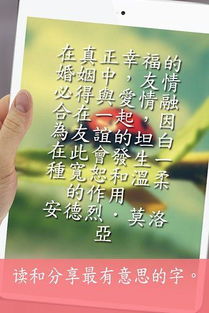 在真正幸福的
婚姻中，友情
必得與愛情融
合在一起，因
為友誼的坦白
在此會發生一
種寬恕和溫柔
的作用
安德烈·莫洛
亞
读和分享最有意思的字。